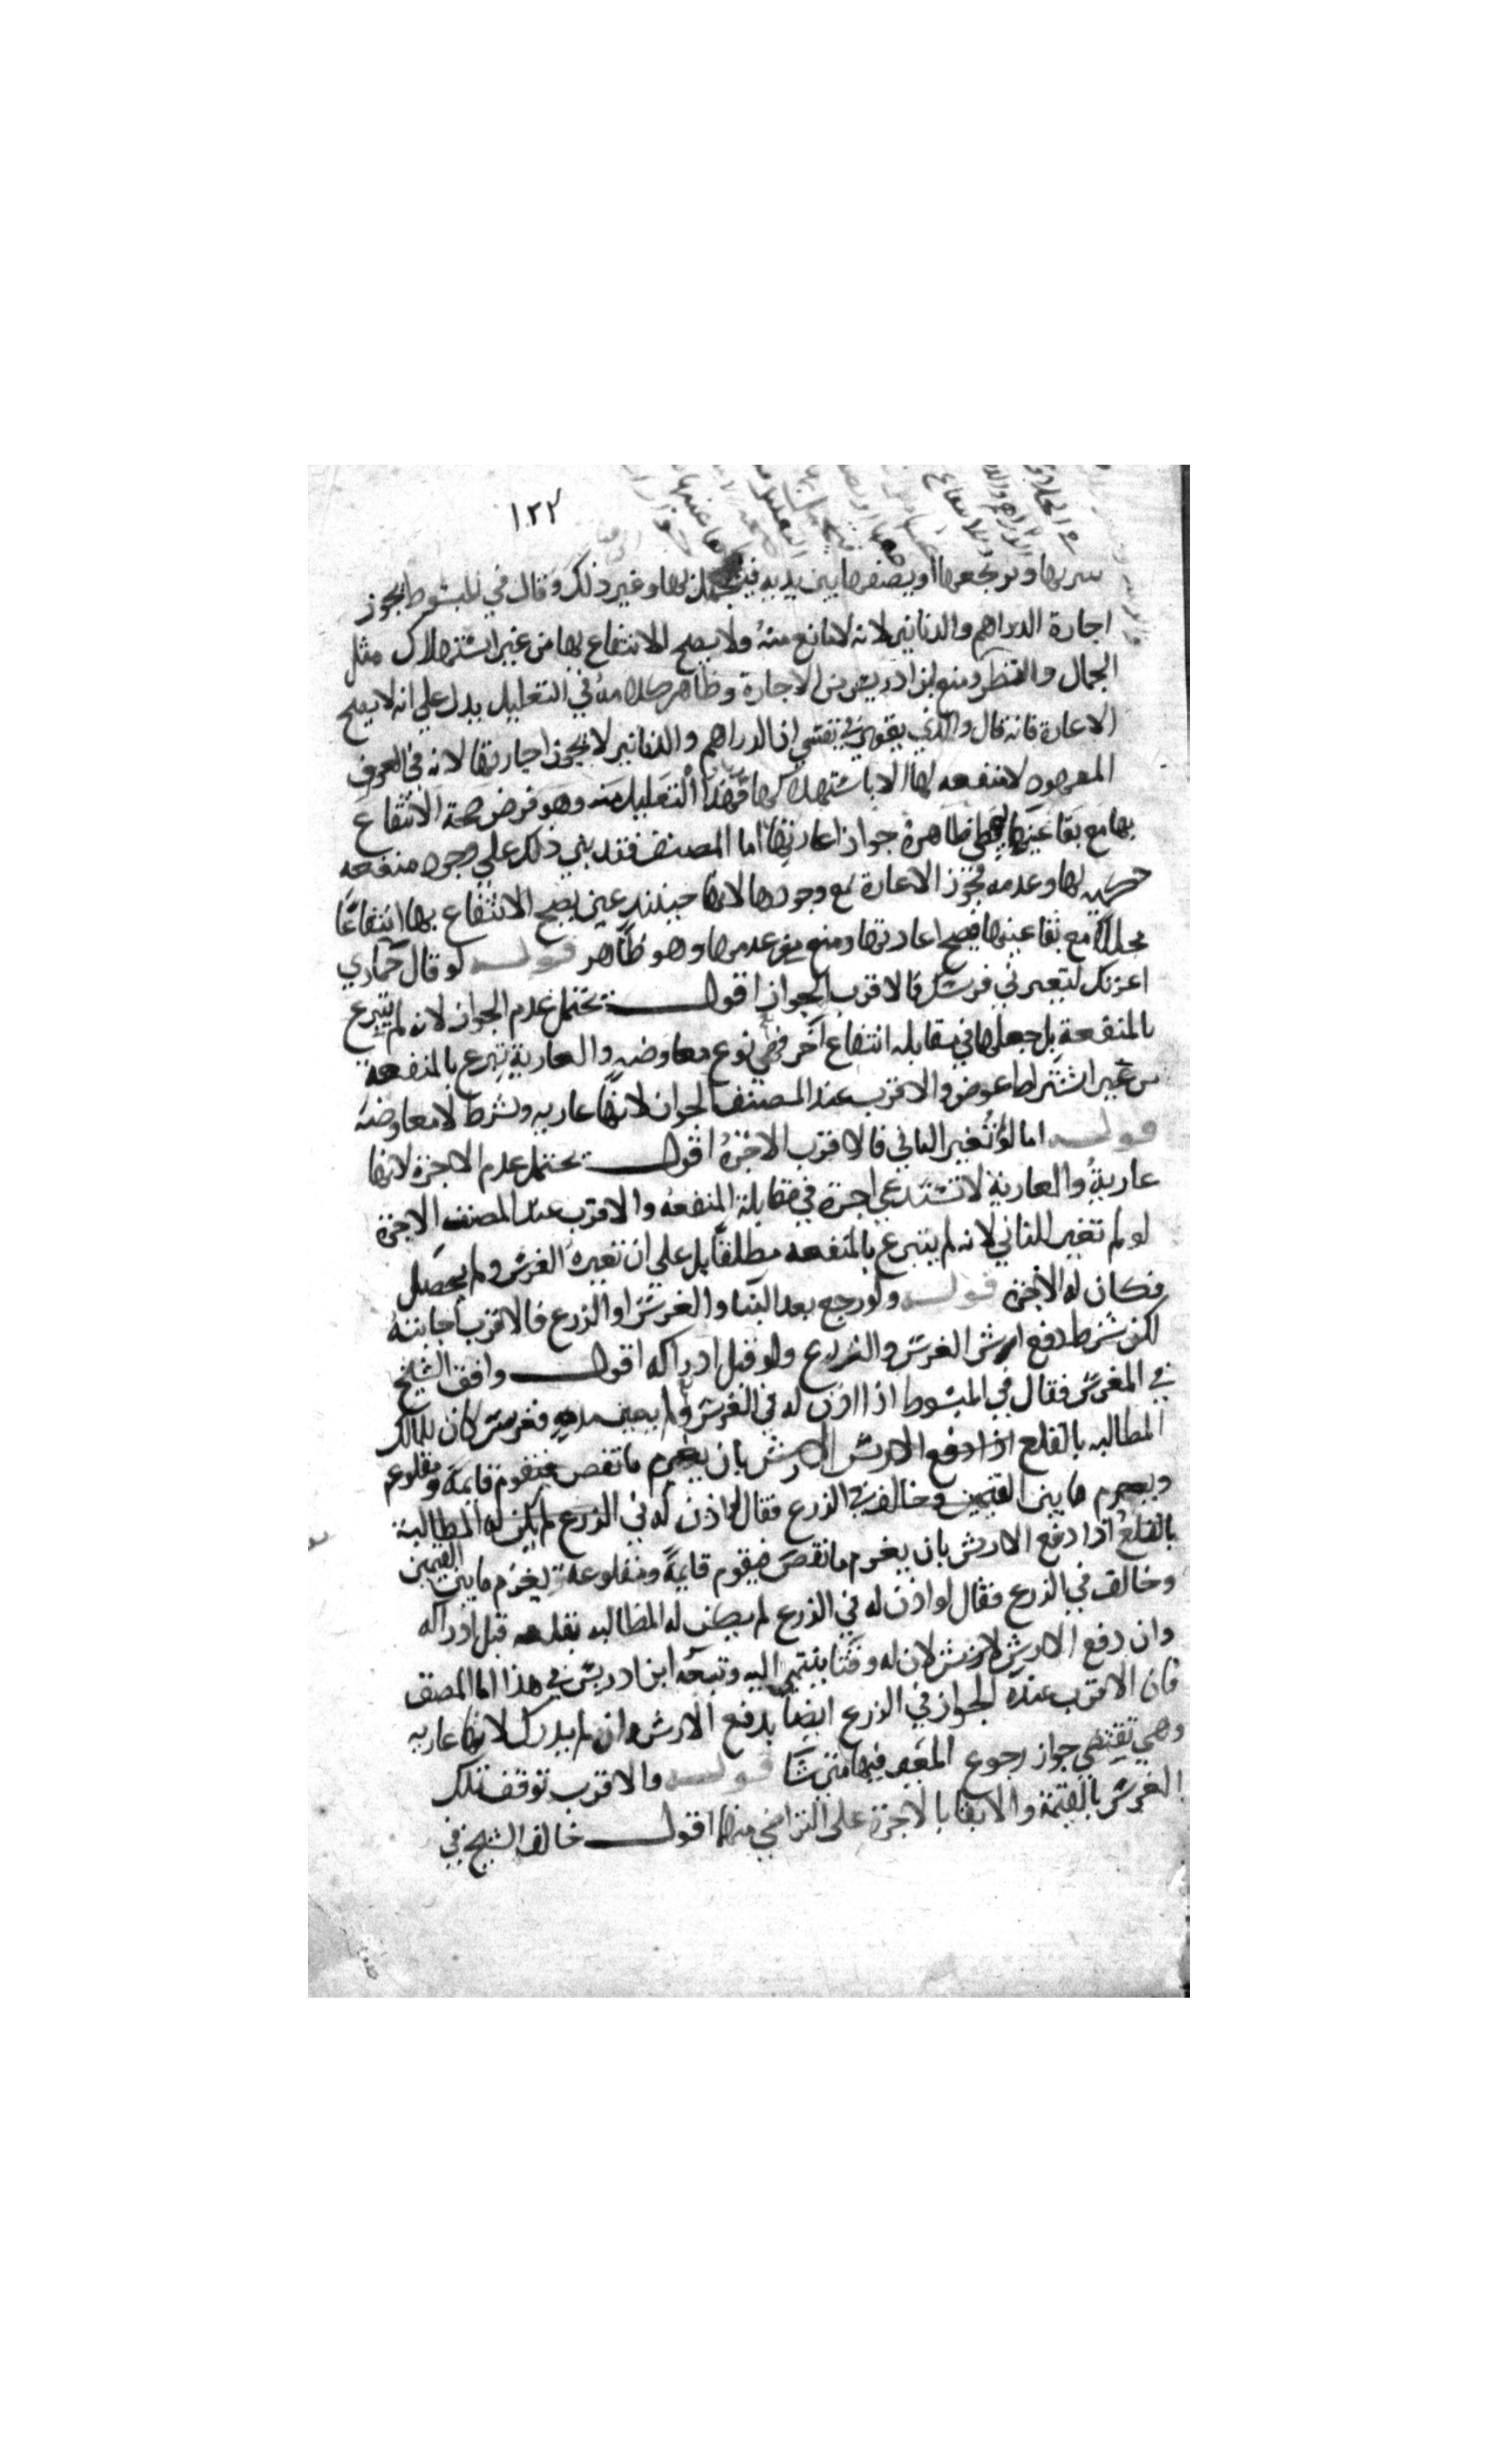 ١٣٢
بها ويرتجعها او يضعها بين يديه فيتجمل بها وغير ذلك وقال في المبسوط يجوز
اجارة الدراهم والدنانير لانه لا مانع منه ولا يصح الانتفاع بها من غير استهلاك مثل
الجمال والنظر ومنع ابن ادريس من الاجارة وظاهر كلامه في التعليل يدل على انه لا يصح
الاعارة فانه قال والذي يقوى في نفسي ان الدراهم والدنانير لا يجوز اجارتها لانه في العرف
المعهود لا منفعة لها الا باستهلاكها فهذا التعليل منه وهو فرض صحة الانتفاع
بها مع بقا عينها يعطي ظاهره جواز اعارتها اما المصنف فقد بنى ذلك على وجود منفعة
بها وعدمه فجوز الاعارة مع وجودها لانها حينئذ عين يصح الانتفاع بها انتفاعًا
محللا مع بقا عينها فيصح اعارتها ومنع مع عدمها وهو ظاهر قوله لو قال حماري
اعرتك لتعيرني فرسك فالاقرب الجواز اقول يحتمل عدم الجواز لانه لم يتبرع
بالمنفعة بل جعلها في مقابلة انتفاع آخر فهي نوع معاوضه والعارية تبرع بالمنفعة
من غير اشتراط عوض والاقرب عند المصنف الجواز لانها عاريه وشرط لا معاوضه
قوله اما لو لم تغير الثاني فالاقرب الاجرة اقول يحتمل عدم الاجرة لانها
عارية والعارية لا تستدعي اجرة في مقابلة المنفعة والاقرب عند المصنف الاجرة
لو لم تغير الثاني لانه لم يتبرع بالمنفعه مطلقًا بل على ان تعيره الفرس ولم يحصل
فكان له الاجرة قوله ولو رجع بعد البنا والغرس او الزرع فالاقرب اجابته
لكن بشرط دفع ارش الغرس والزرع ولو قبل ادراكه اقول وافق الشيخ
في الغرس فقال في المبسوط اذا اذن له في الغرس ولم يعين مده فغرس كان للمالك
المطالبه بالقلع اذا دفع الارش بان يغرم ما نقص فيقوم قايمة ومقلوعه
ويغرم ما بين القيمتين وخالف في الزرع فقال لو اذن له في الزرع لم يكن له المطالبة
بالقلع اذا دفع الارش بان يغرم ما نقص فيقوم قايمةً ومقلوعة ويغرم ما بين القيمتين
وخالف في الزرع فقال لو اذن له في الزرع لم يكن له المطالبه بقلعه قبل ادراكه
وان دفع الارش لان له وقتا ينتهي اليه وتبعه ابن ادريس في هذا اما المصنف
فان الاقرب عنده الجواز في الزرع ايضًا بدفع الارش وان لم يدرك لانها عاريه
وهي تقتضي جواز رجوع المعير فيها متى شا قوله والاقرب توقف تملك
الغرس بالقيمة والابقا بالاجرة على التراضي منهما اقول خالف الشيخ في